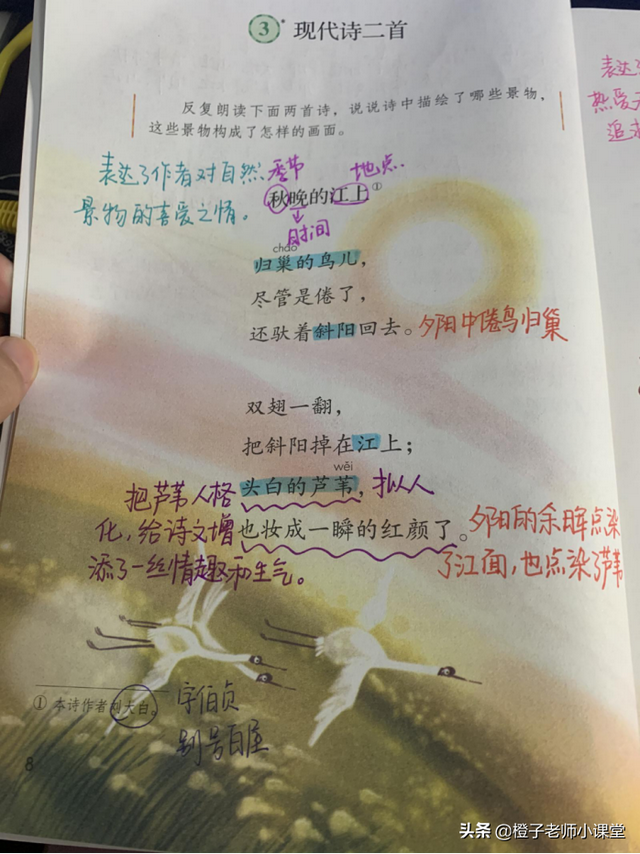 3* 现代诗二首
反复朗读下面两首诗，说说诗中描绘了哪些景物，
这些景物构成了怎样的画面。
表达
热爱
追求
表达了作者对自然
景物的喜爱之情。
季节
地点
秋晚的江上①
时间
cháo
归巢的鸟儿，
尽管是倦了，
还驮着斜阳回去。
夕阳中倦鸟归巢
双翅一翻，
把斜阳掉在江上；
wěi
头白的芦苇，
也妆成一瞬的红颜了。
把芦苇人格
化，给诗文增
添了一丝情趣和生气。
拟人
夕阳的余晖点染
了江面，也点染了芦苇
① 本诗作者刘大白。
字伯贞
别号白屋
8
头条 @橙子老师小课堂